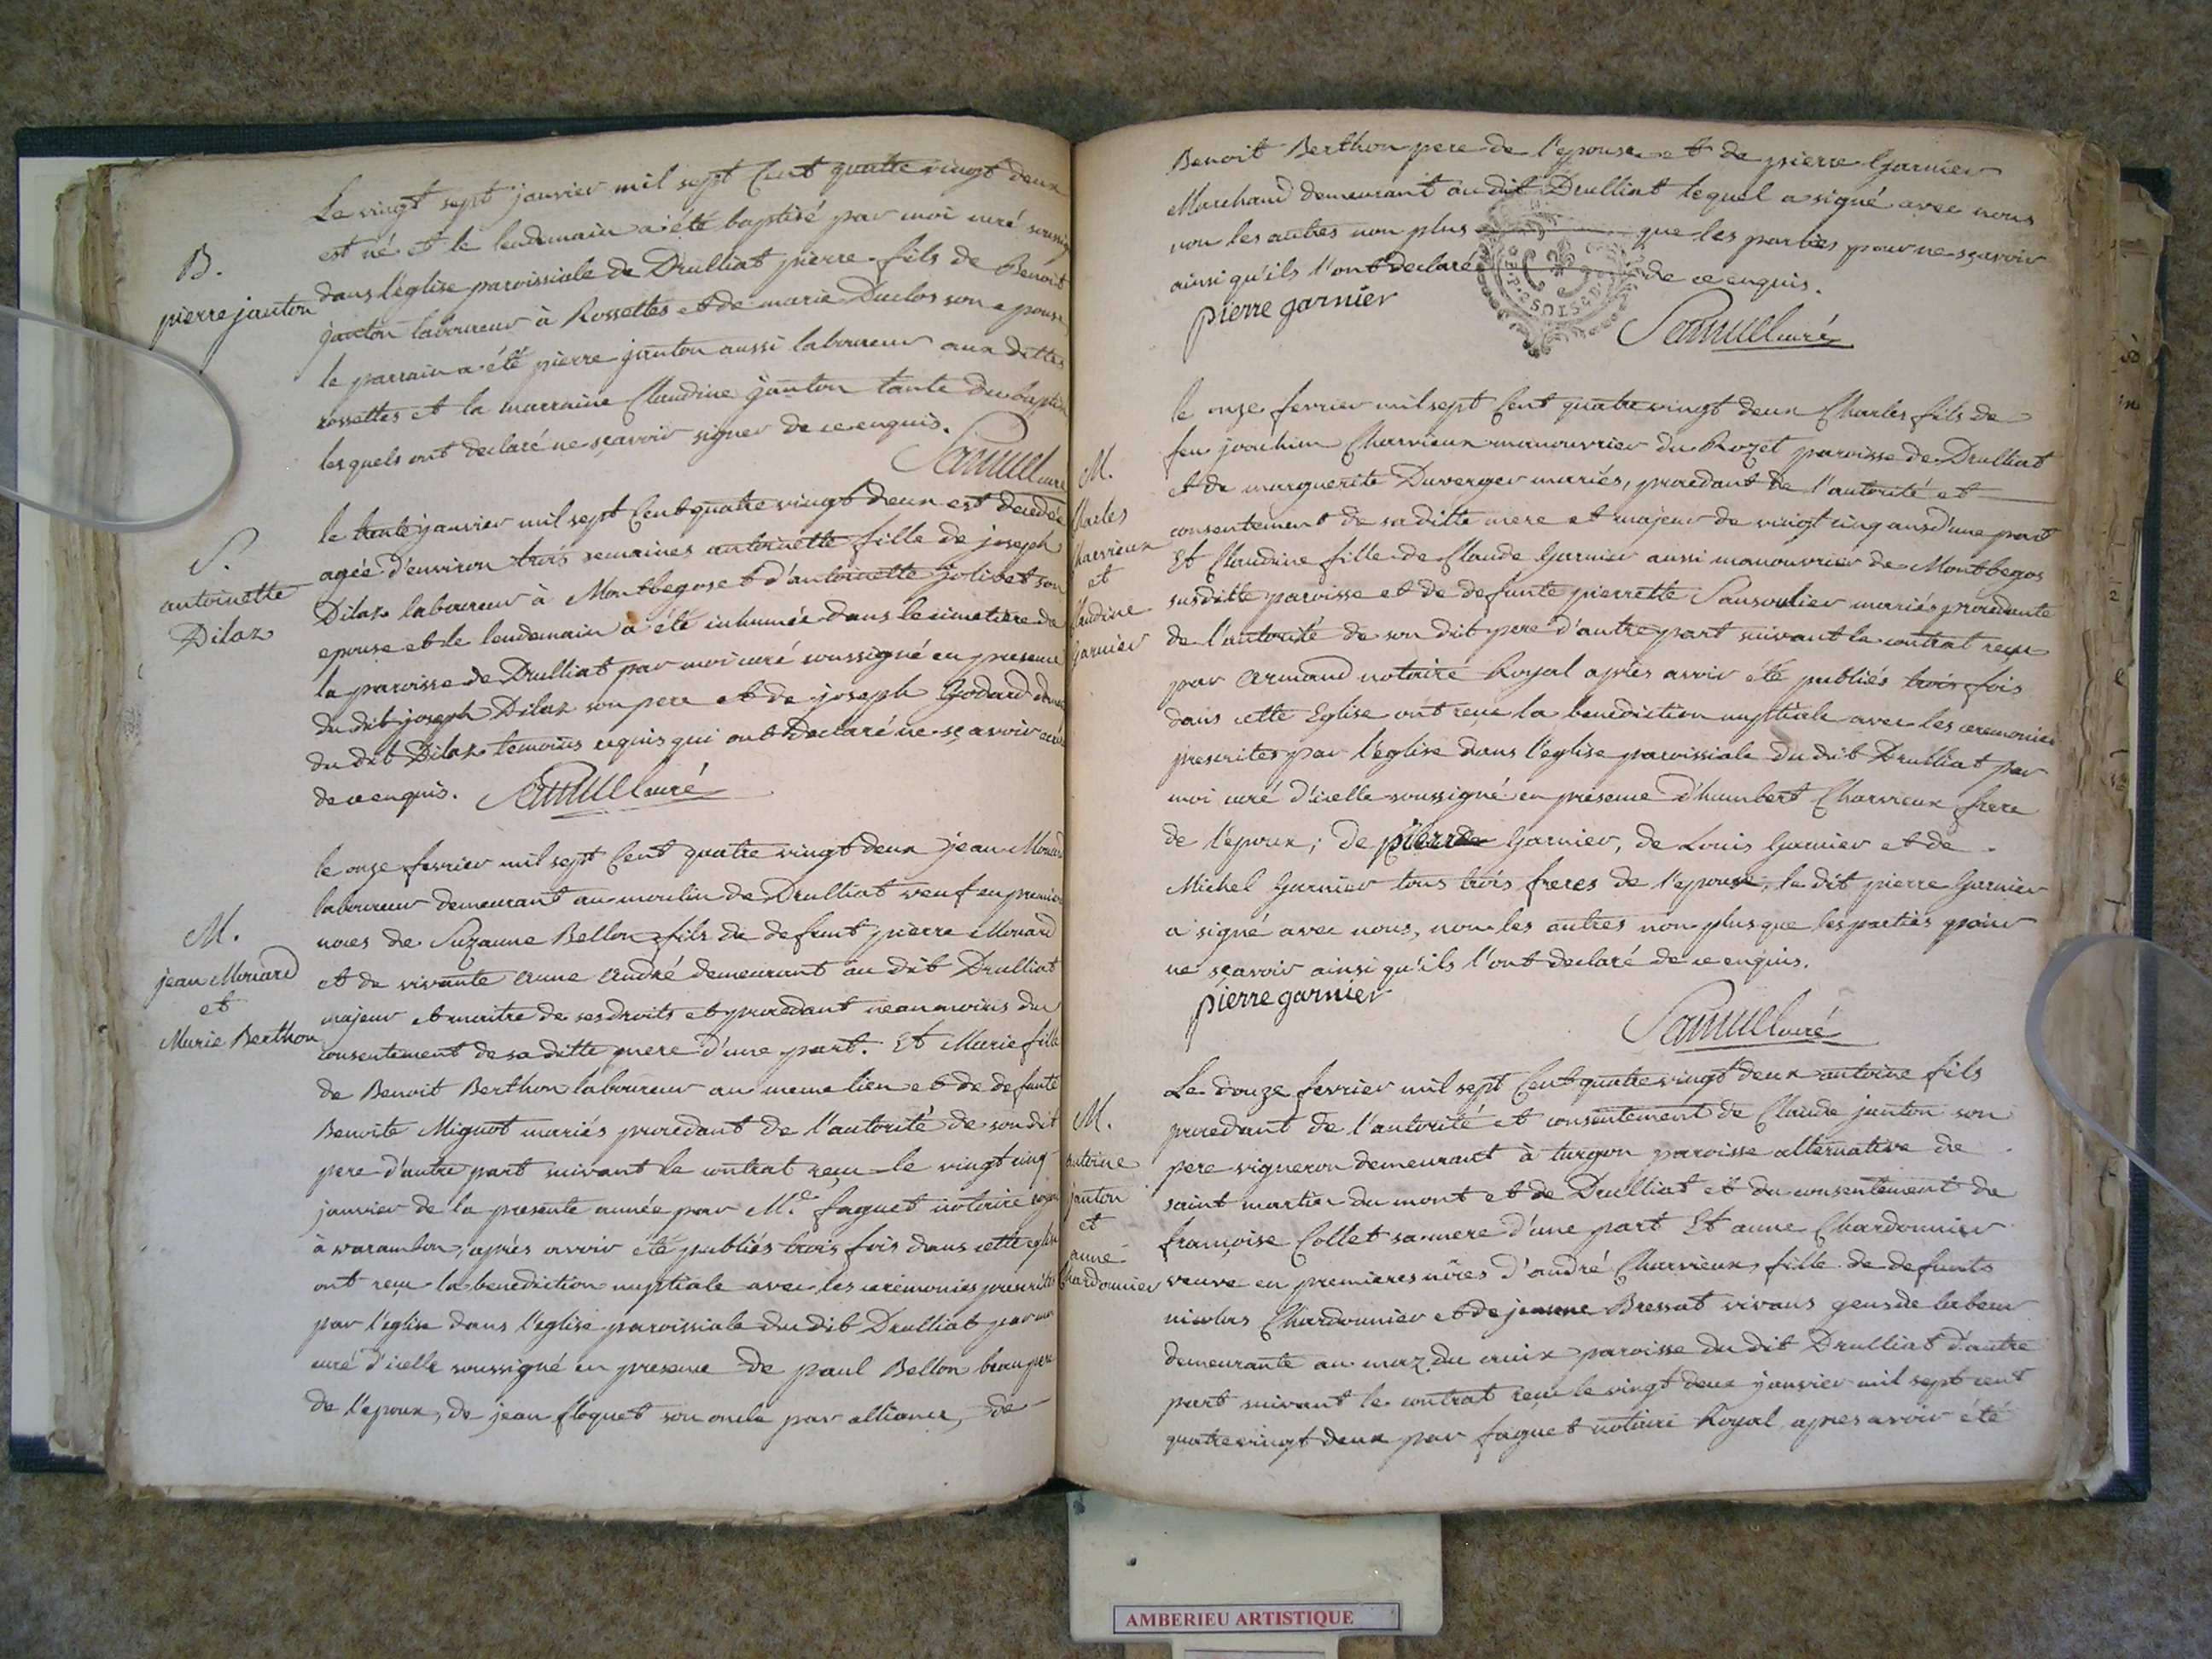 Le vingt sept janvier mil sept Cent quatre vingt deux
est né et le lendemain a été baptisé par moi curé soussigné
B.
pierre janton
dans l'église paroissiale de Drulliat pierre fils de Benoit
janton laboureur à Rossettes et de marie Duclos son epouse
le parrain a été pierre janton aussi laboureur aux dittes
rossettes et la marraine Claudine janton tante du baptisé
lesquels ont declaré ne sçavoir signer de ce enquis.
Samuel curé
S.
antoinette
Dilaz
le trente janvier mil sept Cent quatre vingt deux est decedée
agée d'environ trois semaines antoinette fille de joseph
Dilaz laboureur à Montbegos et d'antoinette jolivet son
epouse et le lendemain a été inhumée dans le cimetiere de
la paroisse de Drulliat par moi curé soussigné en presence
du dit joseph Dilaz son pere et de joseph Godard
du dit Dilaz temoins requis qui ont declaré ne sçavoir
de ce enquis. Samuel curé
M.
jean Monard
et
Marie Berthon
le onze fevrier mil sept Cent quatre vingt deux jean Monard
laboureur demeurant au moulin de Drulliat veuf en premieres
noces de Suzanne Bellon fils de defunt pierre Monard
et de vivante anne andré demeurant au dit Drulliat
majeur et maitre de ses droits et procedant neanmoins du
consentement de sa ditte mere d'une part. Et Marie fille
de Benoit Berthon laboureur au meme lieu et de defunte
Benoite Mignot mariés procedant de l'autorité de son dit
pere d'autre part suivant le contrat reçu le vingt cinq
janvier de la presente année par Me. faguet notaire royal
à varambon, après avoir été publiés trois fois dans cette eglise
ont reçu la benediction nuptiale avec les ceremonies prescrites
par l'église dans l'eglise paroissiale du dit Drulliat par moi
curé d'icelle soussigné en presence de paul Bellon beau pere
de l'epoux, de jean floquet son oncle par alliance, de
Benoit Berthon pere de l'epouse et de pierre Garnier
Marchand demeurant au dit Drulliat lequel a signé avec nous
non les autres non plus que les parties pour ne sçavoir
ainsi qu'ils l'ont declaré de ce enquis.
pierre garnier
Samuel curé
M.
Charles
Charvieux
et
Claudine
garnier
le onze fevrier mil sept Cent quatre vingt deux Charles fils de
feu joachim Charvieux manouvrier du Rozet paroisse de Drulliat
et de marguerite Duverger mariés, procedant de l'autorité et
consentement de sa ditte mere et majeur de vingt cinq ans d'une part
Et Claudine fille de Claude Garnier aussi manouvrier de Montbegos
susditte paroisse et de defunte pierrette Sansoulier mariés procedante
de l'autorité de son dit pere d'autre part suivant le contrat reçu
par armand notaire Royal après avoir été publiés trois fois
dans cette Eglise ont reçu la benediction nuptiale avec les ceremonies
prescrites par l'église dans l'eglise paroissiale du dit Drulliat par
moi curé d'icelle soussigné en presence d'humbert Charvieux frere
de l'epoux; de pierre Garnier, de Louis Garnier et de
Michel Garnier tous trois freres de l'epouse, le dit pierre Garnier
a signé avec nous, non les autres non plus que les parties pour
ne sçavoir ainsi qu'ils l'ont declaré de ce enquis.
pierre garnier
Samuel curé
M.
antoine
janton
et
anne
Chardonnier
Le douze fevrier mil sept Cent quatre vingt deux antoine fils
procedant de l'autorité et consentement de Claude janton son
pere vigneron demeurant à turgon paroisse alternative de
saint martin du mont et de Drulliat et du consentement de
françoise Collet sa mere d'une part Et anne Chardonnier
veuve en premieres nôces d'andré Charvieux, fille de defunts
nicolas Chardonnier et de jeanne Bressat vivans gens de labeur
demeurante au maz du croix paroisse du dit Drulliat d'autre
part suivant le contrat reçu le vingt deux janvier mil sept cent
quatre vingt deux par faguet notaire Royal, apres avoir été
AMBERIEU ARTISTIQUE